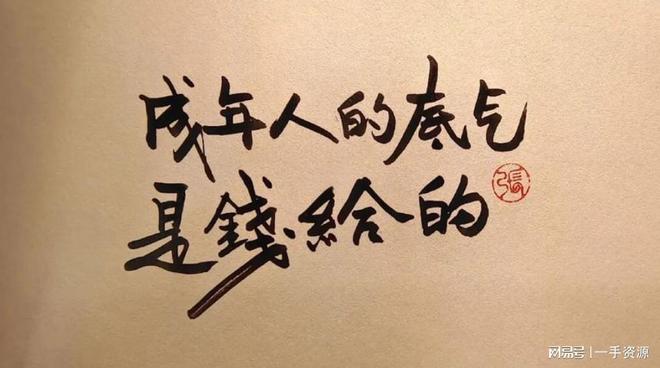 成年人的底气
是錢給的
張
网易号 | 一手资源